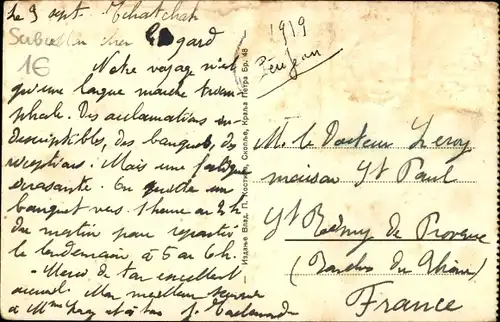 Le 9 sept.
mon cher Edgard
Notre voyage n'est
qu'une longue marche triom-
phale. Des acclamations in-
descriptibles, des banquets, des
réceptions. Mais une fatigue
écrasante. On quitte un
banquet vers 1 heure ou 2 h
du matin pour repartir
le lendemain à 5 ou 6 h.
- Merci de ton excellent
accueil. Mon meilleur souvenir
à Mme Leroy et à toi
1€
— Издање Влад. П. Костић, Скопље, Краља Петра Бр. 48
1919
M. le Docteur Leroy
maison St Paul
St Rémy de Provence
(Bouches du Rhône)
France